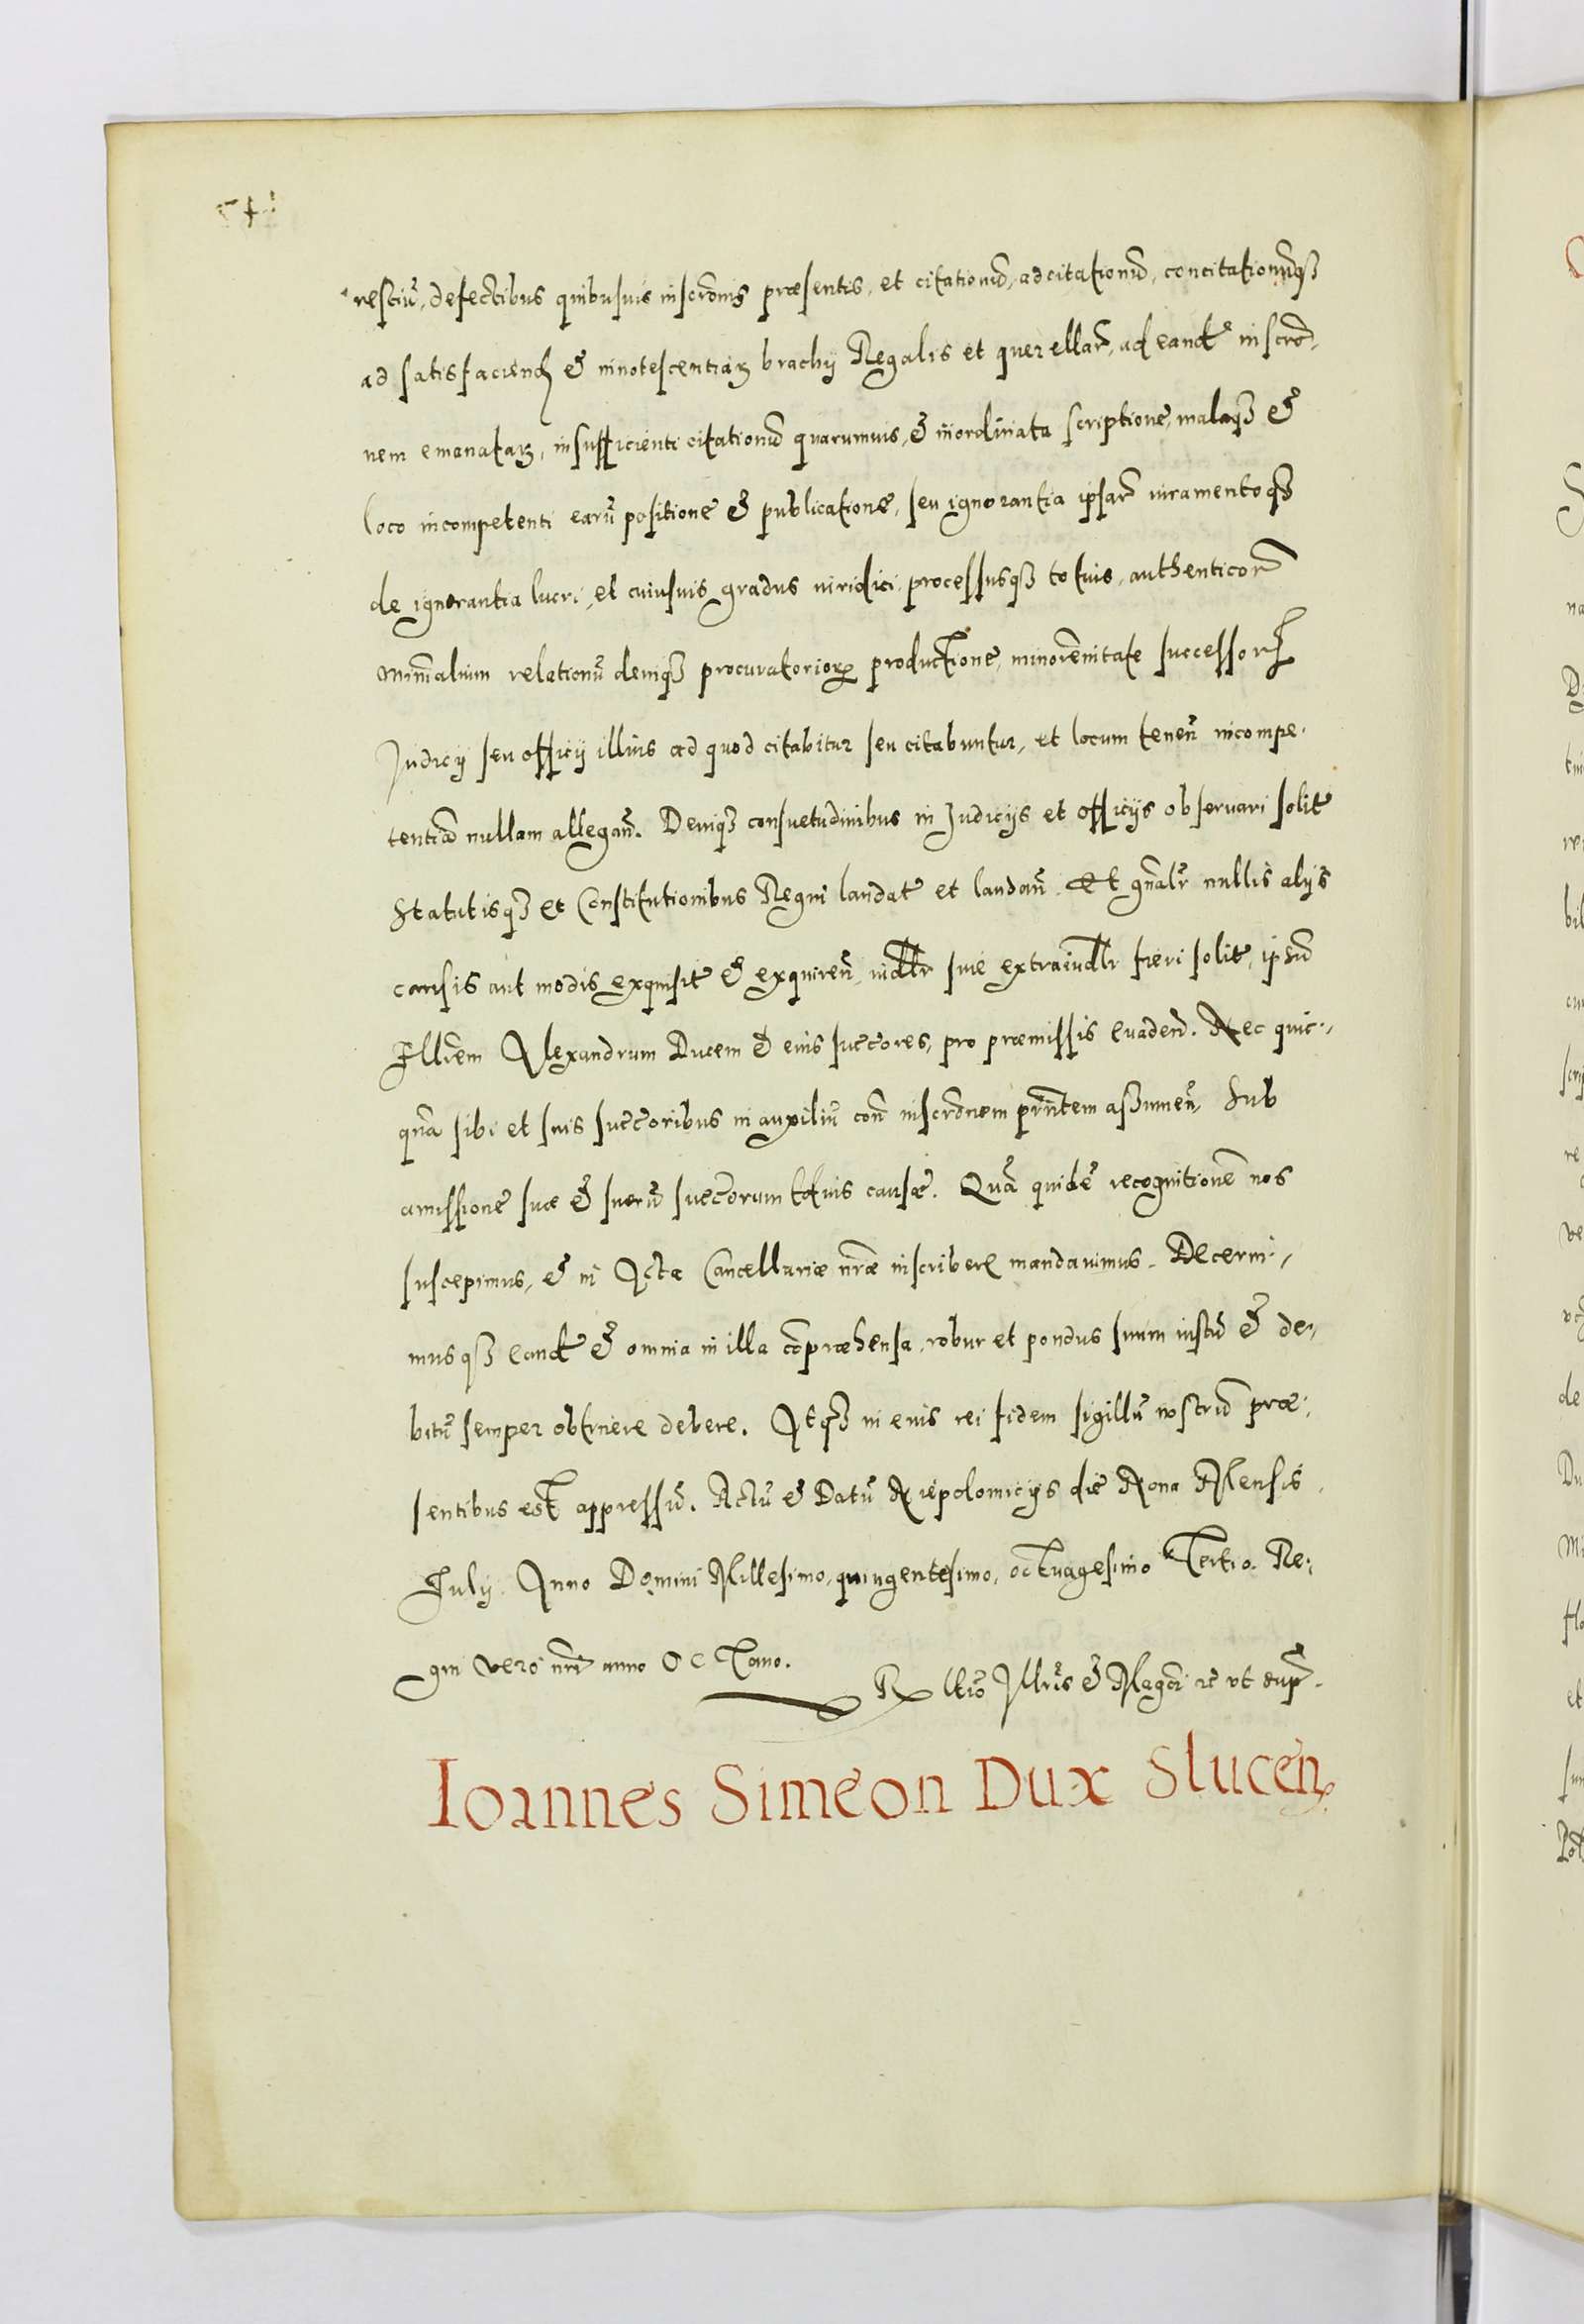 resciũ, defectibus quibusuis inscrõnis præsentis, et citationũ, adcitationũ, concitationũq₃
ad satisfaciend̃ & innotescentiaȝ brachy Regalis et querellar̃, ad eand̃ inscrõ,
nem emanataȝ, insufficienti citationũ quarumuis, & inordinata scriptione, malaq₃ &
loco incompetenti earũ positione & publicatione, seu ignorantia ipsar̃ iuramentoq₃
de ignorantia lucri, et cuiusuis gradus iuridici, processusq₃ totius, authenticor̃
relationũ deniq₃ procuratoriorꝝ productione, minorẽnitate successorꝝ
Judicÿ seu officÿ illius ad quod citabitur seu citabuntur, et locum teneñ incompe,
tentiã nullam allegañ. Deniq₃ consuetudinibus in Judicÿs et officÿs obseruari solit̃
Statutisq₃ et Constitutionibus Regni laudat̃ et laudañ. Et gñalr̃ nullis alÿs
causis aut modis exquisit̃ & exquireñ, iudllr̃ siue extraiudllr̃ fieri solit̃, ipsũ
Illrem Alexandrum Ducem & eius succores, pro præmissis euadeñ. Nec quic,
quã sibi et suis succoribus in auxiliũ coñ inscrõnem prñtem assumeñ, Sub
amissione suæ & suorũ succorum totius causæ. Quã quidẽ recognitionẽ nos
suscepimus, & in Acta Cancellariæ nr̃æ inscribere mandauimus. Decerni,
musq₃ eand̃ & omnia in illa cõpræhensa, robur et pondus suum iustũ & de,
bitũ semper obtinere debere. Atq₃ in eius rei fidem sigillũ nostrũ præ,
sentibus est appressũ. Actũ & Datũ Niepolomicÿs die Nona Mensis
Julÿ. Anno Domini Millesimo, quingentesimo, octuagesimo Tertio. Re,
gni vero nr̃i anno Octauo.
Rellio Illris & Magci rẽ vt sup̃.
Ioannes Simeon Dux Sluceñ